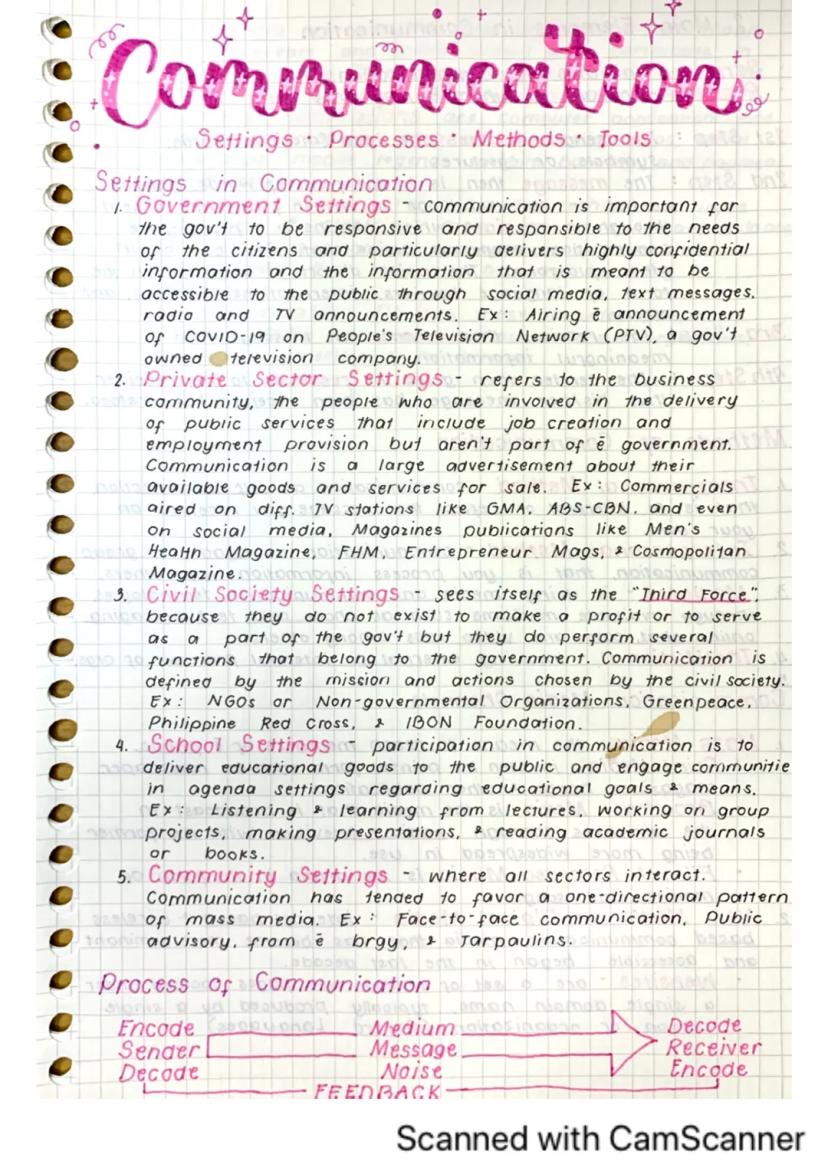 Communication
Settings · Processes · Methods · Tools
Settings in Communication
1. Government Settings - communication is important for
the gov't to be responsive and responsible to the needs
of the citizens and particularly delivers highly confidential
information and the information that is meant to be
accessible to the public through social media, text messages,
radio and TV announcements. Ex: Airing ē announcement
of COVID-19 on People's Television Network (PTV), a gov't
owned television company.
2. Private Sector Settings - refers to the business
community, the people who are involved in the delivery
of public services that include job creation and
employment provision but aren't part of ē government.
Communication is a large advertisement about their
available goods and services for sale. Ex: Commercials
aired on diff. TV stations like GMA, ABS-CBN, and even
on social media, Magazines publications like Men's
Health Magazine, FHM, Entrepreneur Mags, & Cosmopolitan
Magazine.
3. Civil Society Settings - sees itself as the "Third Force",
because they do not exist to make a profit or to serve
as a part of the gov't but they do perform several
functions that belong to the government. Communication is
defined by the mission and actions chosen by the civil society.
Ex: NGOs or Non-governmental Organizations, Greenpeace,
Philippine Red Cross, & IBON Foundation.
4. School Settings - participation in communication is to
deliver educational goods to the public and engage communitie
in agenda settings regarding educational goals & means.
Ex: Listening & learning from lectures, working on group
projects, making presentations, & reading academic journals
or books.
5. Community Settings - where all sectors interact.
Communication has tended to favor a one-directional pattern
of mass media. Ex: Face-to-face communication, Public
advisory, from ē brgy, & Tarpaulins.
Process of Communication
Encode Medium Decode
Sender Message Receiver
Decode Noise Encode
FEEDBACK
Scanned with CamScanner